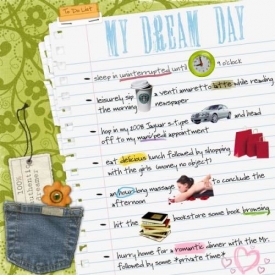 To Do List
MY DREAM DAY
sleep in uninterrupted until 9 o'clock
leisurely sip a venti amaretto latte while reading
the morning newspaper
hop in my 2008 Jaguar s-type and head
off to my mani/pedi appointment
eat delicious lunch followed by shopping
with the girls (money no object)
an hour long massage to conclude the
afternoon
hit the bookstore some book browsing
hurry home for a romantic dinner with the Mr.
followed by some *private time*
100%